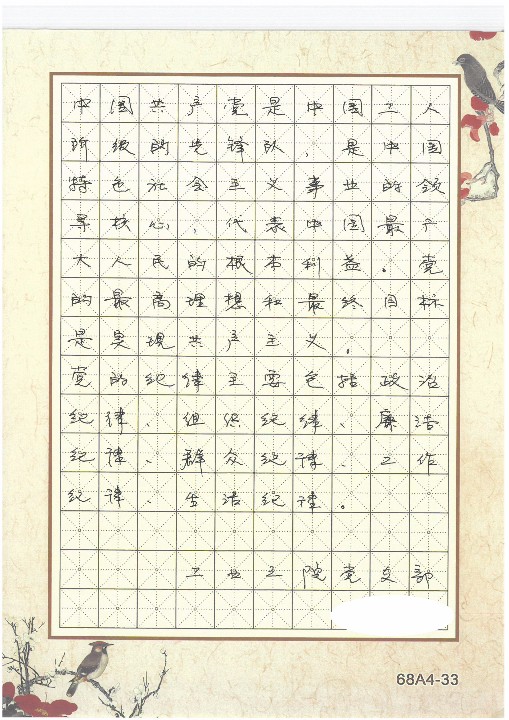 中国共产党是中国工人
阶级的先锋队,是中国
特色社会主义事业的领
导核心,代表中国最广
大人民的根本利益。党
的最高理想和最终目标
是实现共产主义。
党的纪律主要包括政治
纪律、组织纪律、廉洁
纪律、群众纪律、工作
纪律、生活纪律。
工业工院党支部
68A4-33